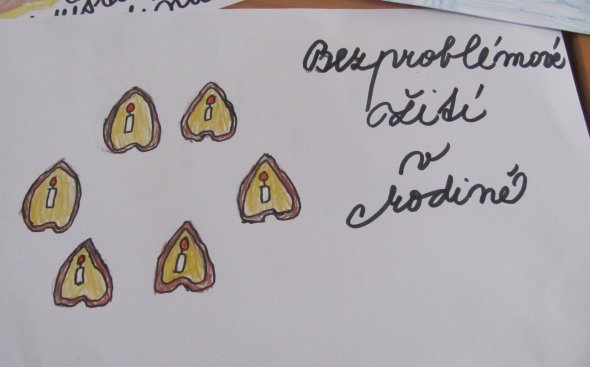 Bezproblémové
žití
v
rodině